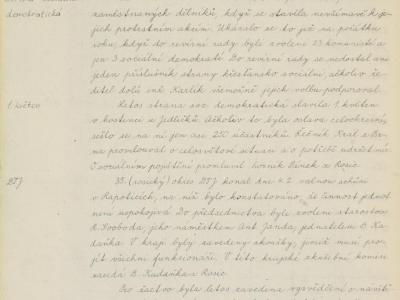 demokratická
zaměstnaných dělníků, když se stavěla nevšímavě k je-
jich protestním akcím. Ukázalo se to již na počátku
roku, když do revírní rady byli zvoleni 23 komunisté a
jen 3 sociální demokrati. Do revírní rady se nedostal ani
jeden příslušník strany křesťansko sociální, ačkoliv ře-
ditel dolů inž. Karlík všemožně jejich volbu podporoval.
1. květen
Letos strana soc. demokratická slavila 1. květen
v hostinci u Jedličků. Ačkoliv to byla oslava celookresní,
sešlo se na ní jen asi 250 účastníků. Řečník Král z Br-
na promlouval o celosvětové situaci a o potřebě udržet mír.
O sociálním pojištění promluvil horník Pánek z Rosic.
DTJ
35. (rosický) okres DTJ konal dne 4. 2. valnou schůzi
v Rapoticích, na níž bylo konstatováno, že činnost jednot
není uspokojivá. Do předsednictva byli zvoleni starostou
R. Svoboda, jeho náměstkem Ant. Janda, jednatelem B. Ku-
daňka. V kraji byly zavedeny zkoušky, jimiž musí pro-
jít všichni funkcionáři. V této krajské zkušební komisi
zasedá B. Kudaňka z Rosic.
Pro žactvo bylo letos zavedeno vysvědčení o návště-